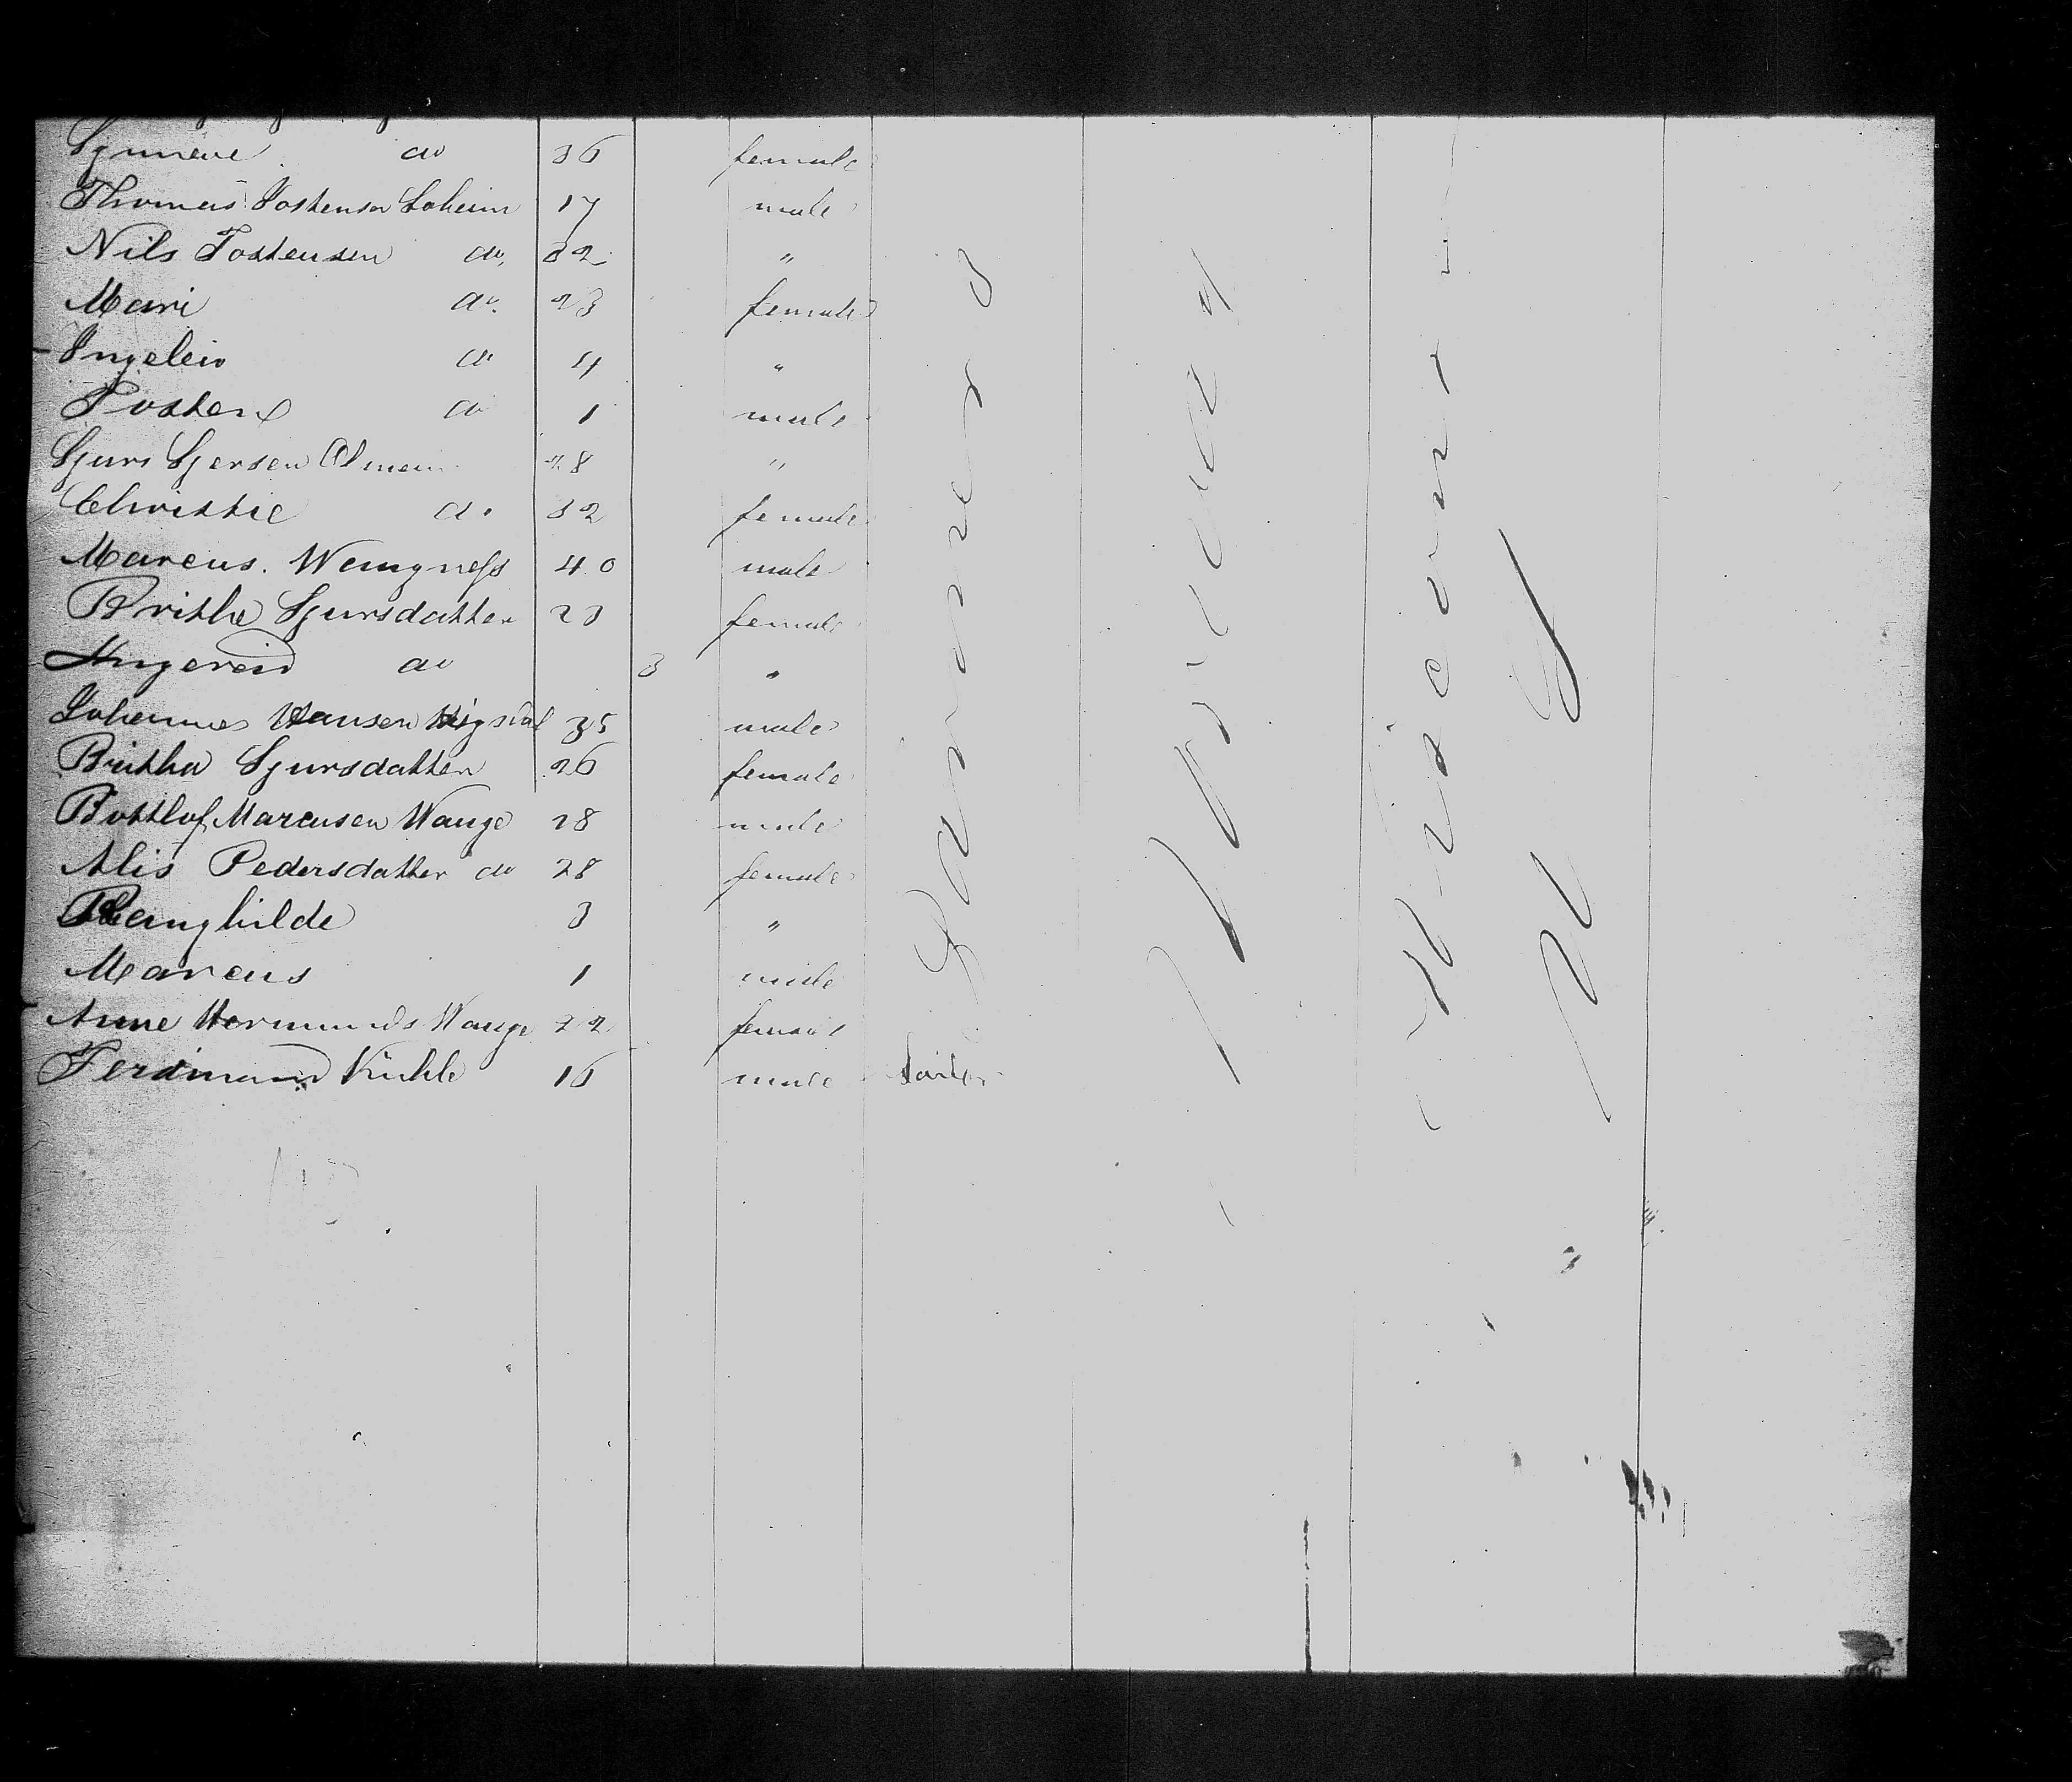 Synneve do 36 female
Thomas Tostensen Loheim 17 male
Nils Tostensen do, 32 "
Mari do. 23 female
Ingeleiv do 4 "
Tosten do 1 male
Sjurs Sjersen 28 "
Christie do 32 female
Marcus. Wangness 40 male
Britha Sjursdatter 23 female
Ingereid do 3 "
Johannes Hansen 35 male
Britha Sjursdatter 26 female
Bottlof Marcusen Wange 28 male
Alis Pedersdatter do 28 female
Ranghilde 3 "
Marcus 1 male
Anne Hermunds Wange 22 female
Ferdinand Kuhle 16 male
Farmers
Norway
Wisconsin